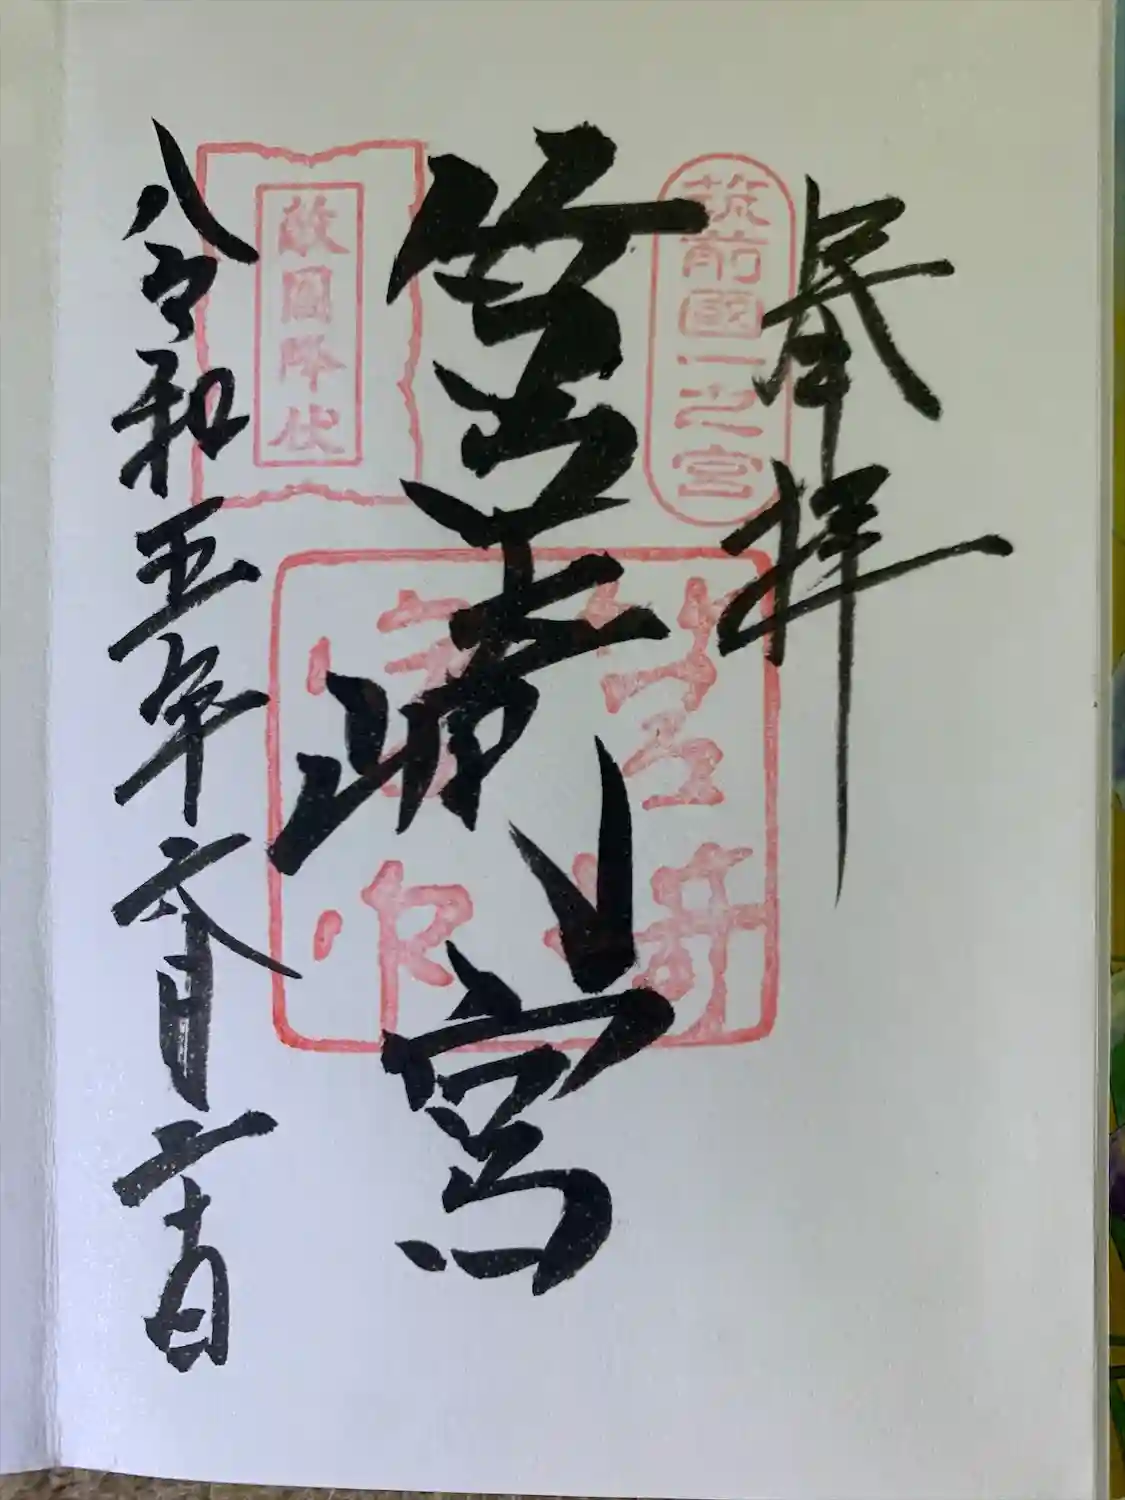 奉拝
筑前國一之宮
筥崎宮
敵國降伏
筥崎
令和五年六月二十日